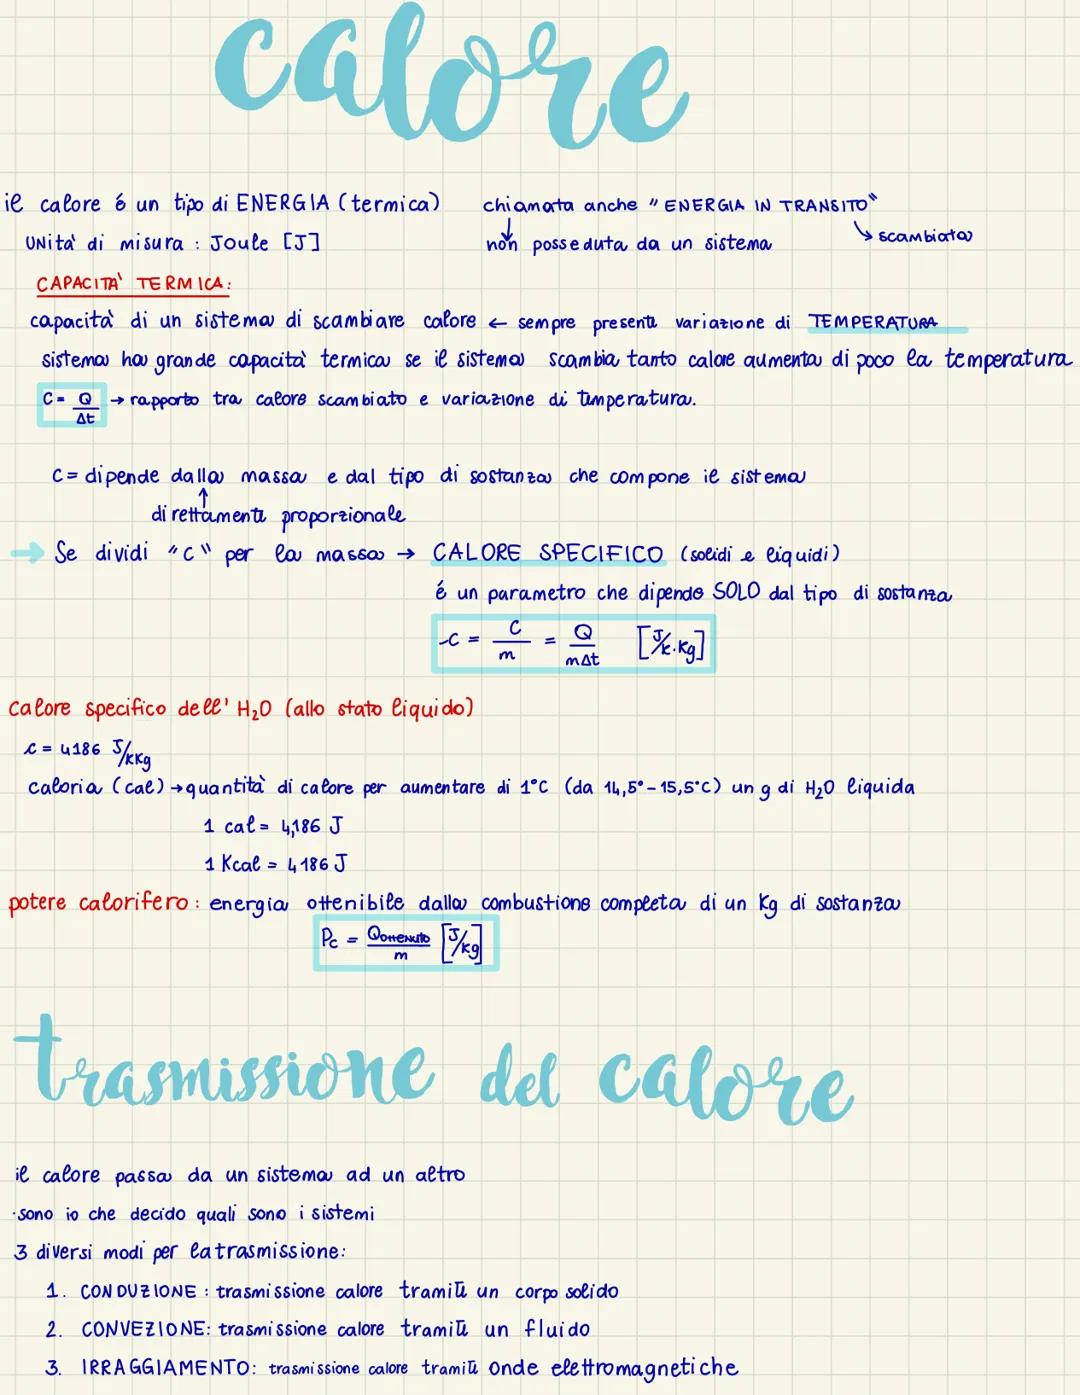 calore
il calore é un tipo di ENERGIA (termica) chiamata anche "ENERGIA IN TRANSITO"
↓ ↳ scambiata
UNità di misura : Joule [J] non posseduta da un sistema
CAPACITA' TERMICA:
capacità di un sistema di scambiare calore ← sempre presente variazione di TEMPERATURA
sistema ha grande capacità termica se il sistema scambia tanto calore aumenta di poco la temperatura
C = Q/Δt → rapporto tra calore scambiato e variazione di temperatura.
C = dipende dalla massa e dal tipo di sostanza che compone il sistema
↑
direttamente proporzionale
→ Se dividi "C" per la massa → CALORE SPECIFICO (solidi e liquidi)
é un parametro che dipende SOLO dal tipo di sostanza
-C = C/m = Q/mΔt [J/K·Kg]
Calore specifico dell' H₂O (allo stato liquido)
c = 4186 J/KKg
caloria (cal) → quantità di calore per aumentare di 1°C (da 14,5°-15,5°C) un g di H₂O liquida
1 cal = 4,186 J
1 Kcal = 4186 J
potere calorifero : energia ottenibile dalla combustione completa di un Kg di sostanza
Pc = Qottenuto/m [J/Kg]
trasmissione del calore
il calore passa da un sistema ad un altro
·sono io che decido quali sono i sistemi
3 diversi modi per la trasmissione:
1. CONDUZIONE : trasmissione calore tramite un corpo solido
2. CONVEZIONE: trasmissione calore tramite un fluido
3. IRRAGGIAMENTO: trasmissione calore tramite onde elettromagnetiche